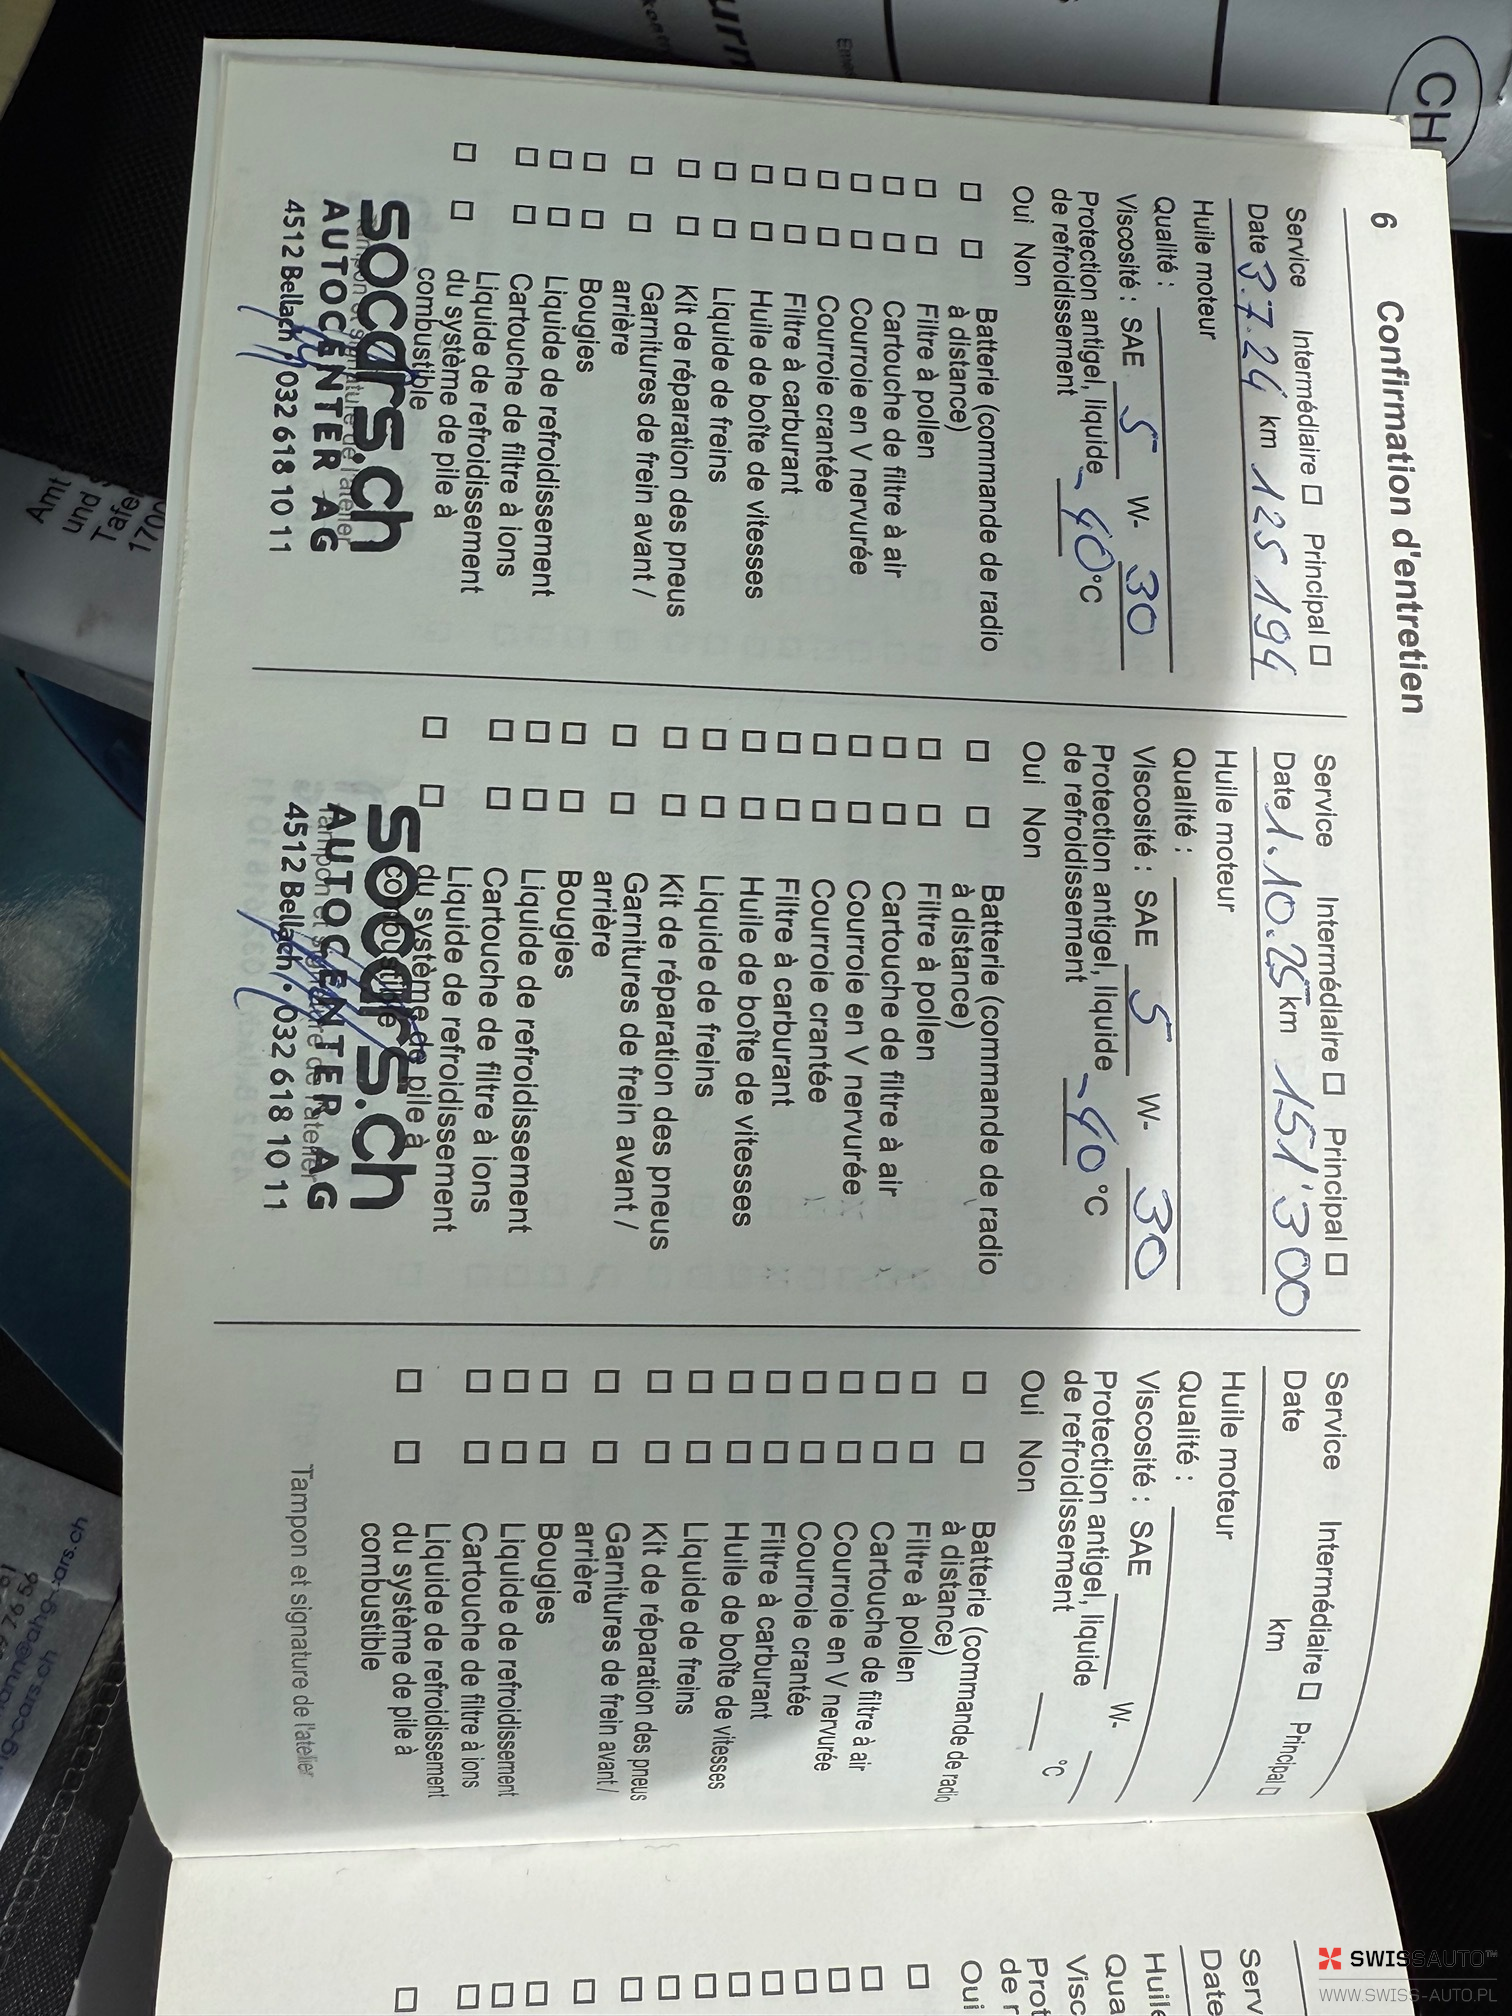 6 Confirmation d'entretien
Service Intermédiaire □ Principal □
Date 3.7.24 km 125 194
Huile moteur
Qualité :
Viscosité : SAE 5 W- 30
Protection antigel, liquide
de refroidissement -40 °C
Oui Non
□ □ Batterie (commande de radio
à distance)
□ □ Filtre à pollen
□ □ Cartouche de filtre à air
□ □ Courroie en V nervurée
□ □ Courroie crantée
□ □ Filtre à carburant
□ □ Huile de boîte de vitesses
□ □ Liquide de freins
□ □ Kit de réparation des pneus
□ □ Garnitures de frein avant /
arrière
□ □ Bougies
□ □ Liquide de refroidissement
□ □ Cartouche de filtre à ions
□ □ Liquide de refroidissement
du système de pile à
combustible
socars.ch
Tampon et signature de l'atelier
AUTOCENTER AG
4512 Bellach • 032 618 10 11
Service Intermédiaire □ Principal □
Date 1.10.25 km 151'300
Huile moteur
Qualité :
Viscosité : SAE 5 W- 30
Protection antigel, liquide
de refroidissement -40 °C
Oui Non
□ □ Batterie (commande de radio
à distance)
□ □ Filtre à pollen
□ □ Cartouche de filtre à air
□ □ Courroie en V nervurée
□ □ Courroie crantée
□ □ Filtre à carburant
□ □ Huile de boîte de vitesses
□ □ Liquide de freins
□ □ Kit de réparation des pneus
□ □ Garnitures de frein avant /
arrière
□ □ Bougies
□ □ Liquide de refroidissement
□ □ Cartouche de filtre à ions
□ □ Liquide de refroidissement
du système de pile à
combustible
socars.ch
Tampon et signature de l'atelier
AUTOCENTER AG
4512 Bellach • 032 618 10 11
Service Intermédiaire □ Principal □
Date km
Huile moteur
Qualité :
Viscosité : SAE W-
Protection antigel, liquide
de refroidissement °C
Oui Non
□ □ Batterie (commande de radio
à distance)
□ □ Filtre à pollen
□ □ Cartouche de filtre à air
□ □ Courroie en V nervurée
□ □ Courroie crantée
□ □ Filtre à carburant
□ □ Huile de boîte de vitesses
□ □ Liquide de freins
□ □ Kit de réparation des pneus
□ □ Garnitures de frein avant /
arrière
□ □ Bougies
□ □ Liquide de refroidissement
□ □ Cartouche de filtre à ions
□ □ Liquide de refroidissement
du système de pile à
combustible
Tampon et signature de l'atelier
Serv
Date
Huile
Qua
Visc
Prot
de r
Oui
CH
Amt
und
Tafe
1700
SWISSAUTO™
WWW.SWISS-AUTO.PL